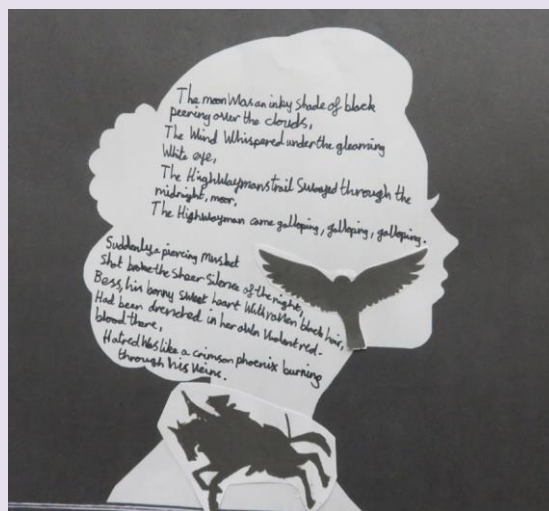 The moon was an inky shade of black
peering over the clouds,
The Wind Whispered under the gleaming
White eye,
The Highwaymans trail Swayed through the
midnight, moor,
The Highwayman came galloping, galloping, galloping.
Suddenly a piercing Musket
Shot broke the sheer Silence of the night,
Bess, his bonny Sweet heart With raven black hair,
Had been drenched in her own Violent red-
blood there,
Hatred Was like a crimson phoenix burning
through his Veins.